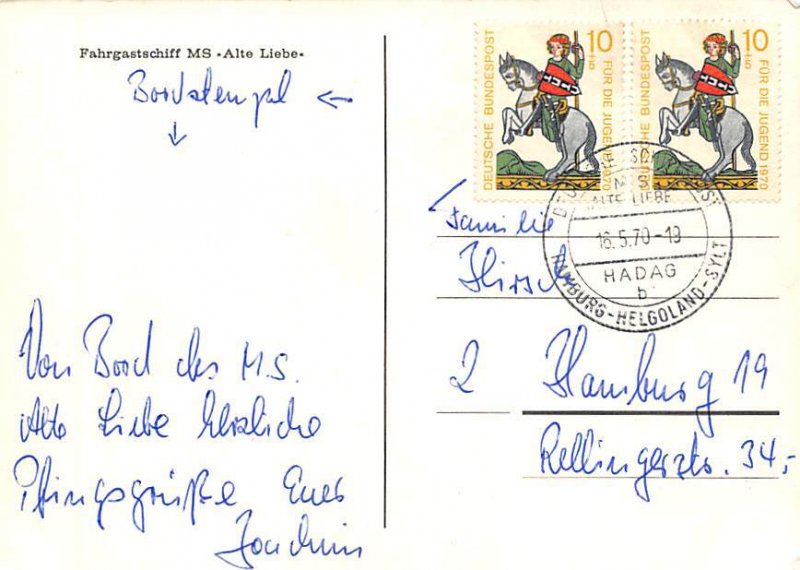 Fahrgastschiff MS »Alte Liebe«
Bordstempel ←
↓
Von Bord des M.S.
Alte Liebe herzliche
Pfingstgrüße Euer
Joachim
10 +5
DEUTSCHE BUNDESPOST
FÜR DIE JUGEND 1970
10 +5
DEUTSCHE BUNDESPOST
FÜR DIE JUGEND 1970
MS
ALTE LIEBE
16.5.70-19
HADAG
b
HAMBURG-HELGOLAND-SYLT
Familie
Hirsch
2 Hamburg 19
Rellingerstr. 34,-